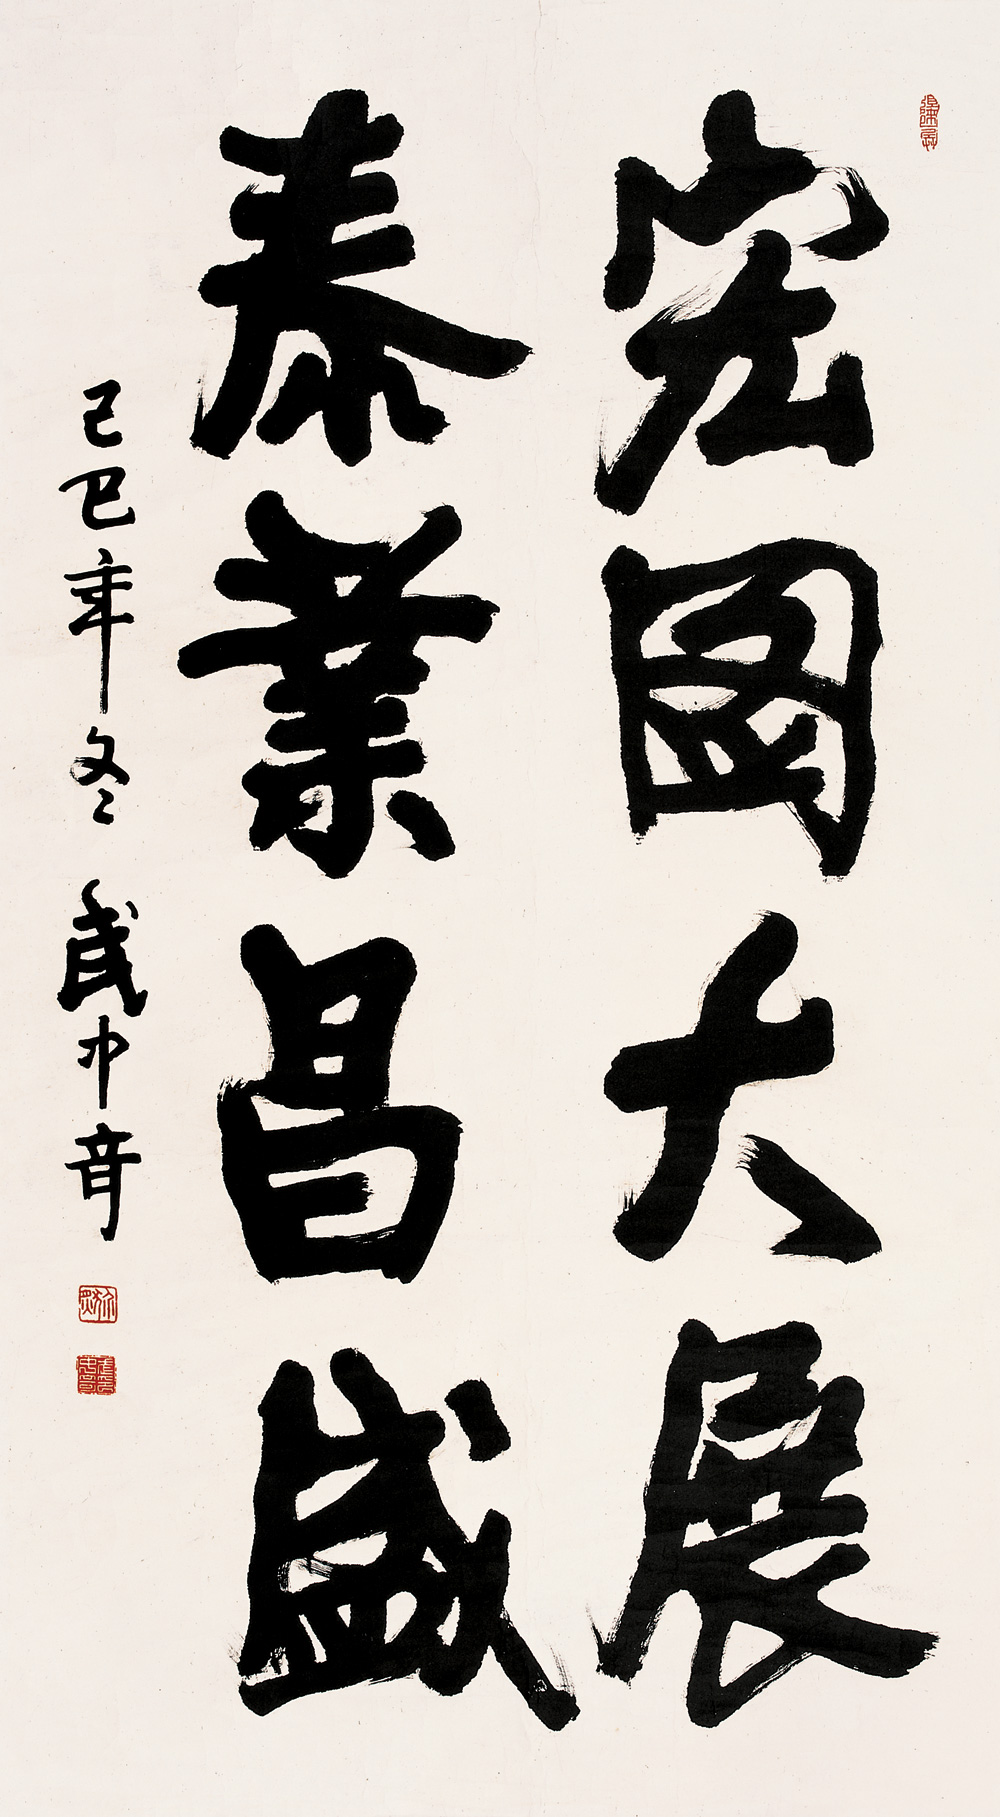 宏图大展
泰業昌盛
己巳年冬 武中奇